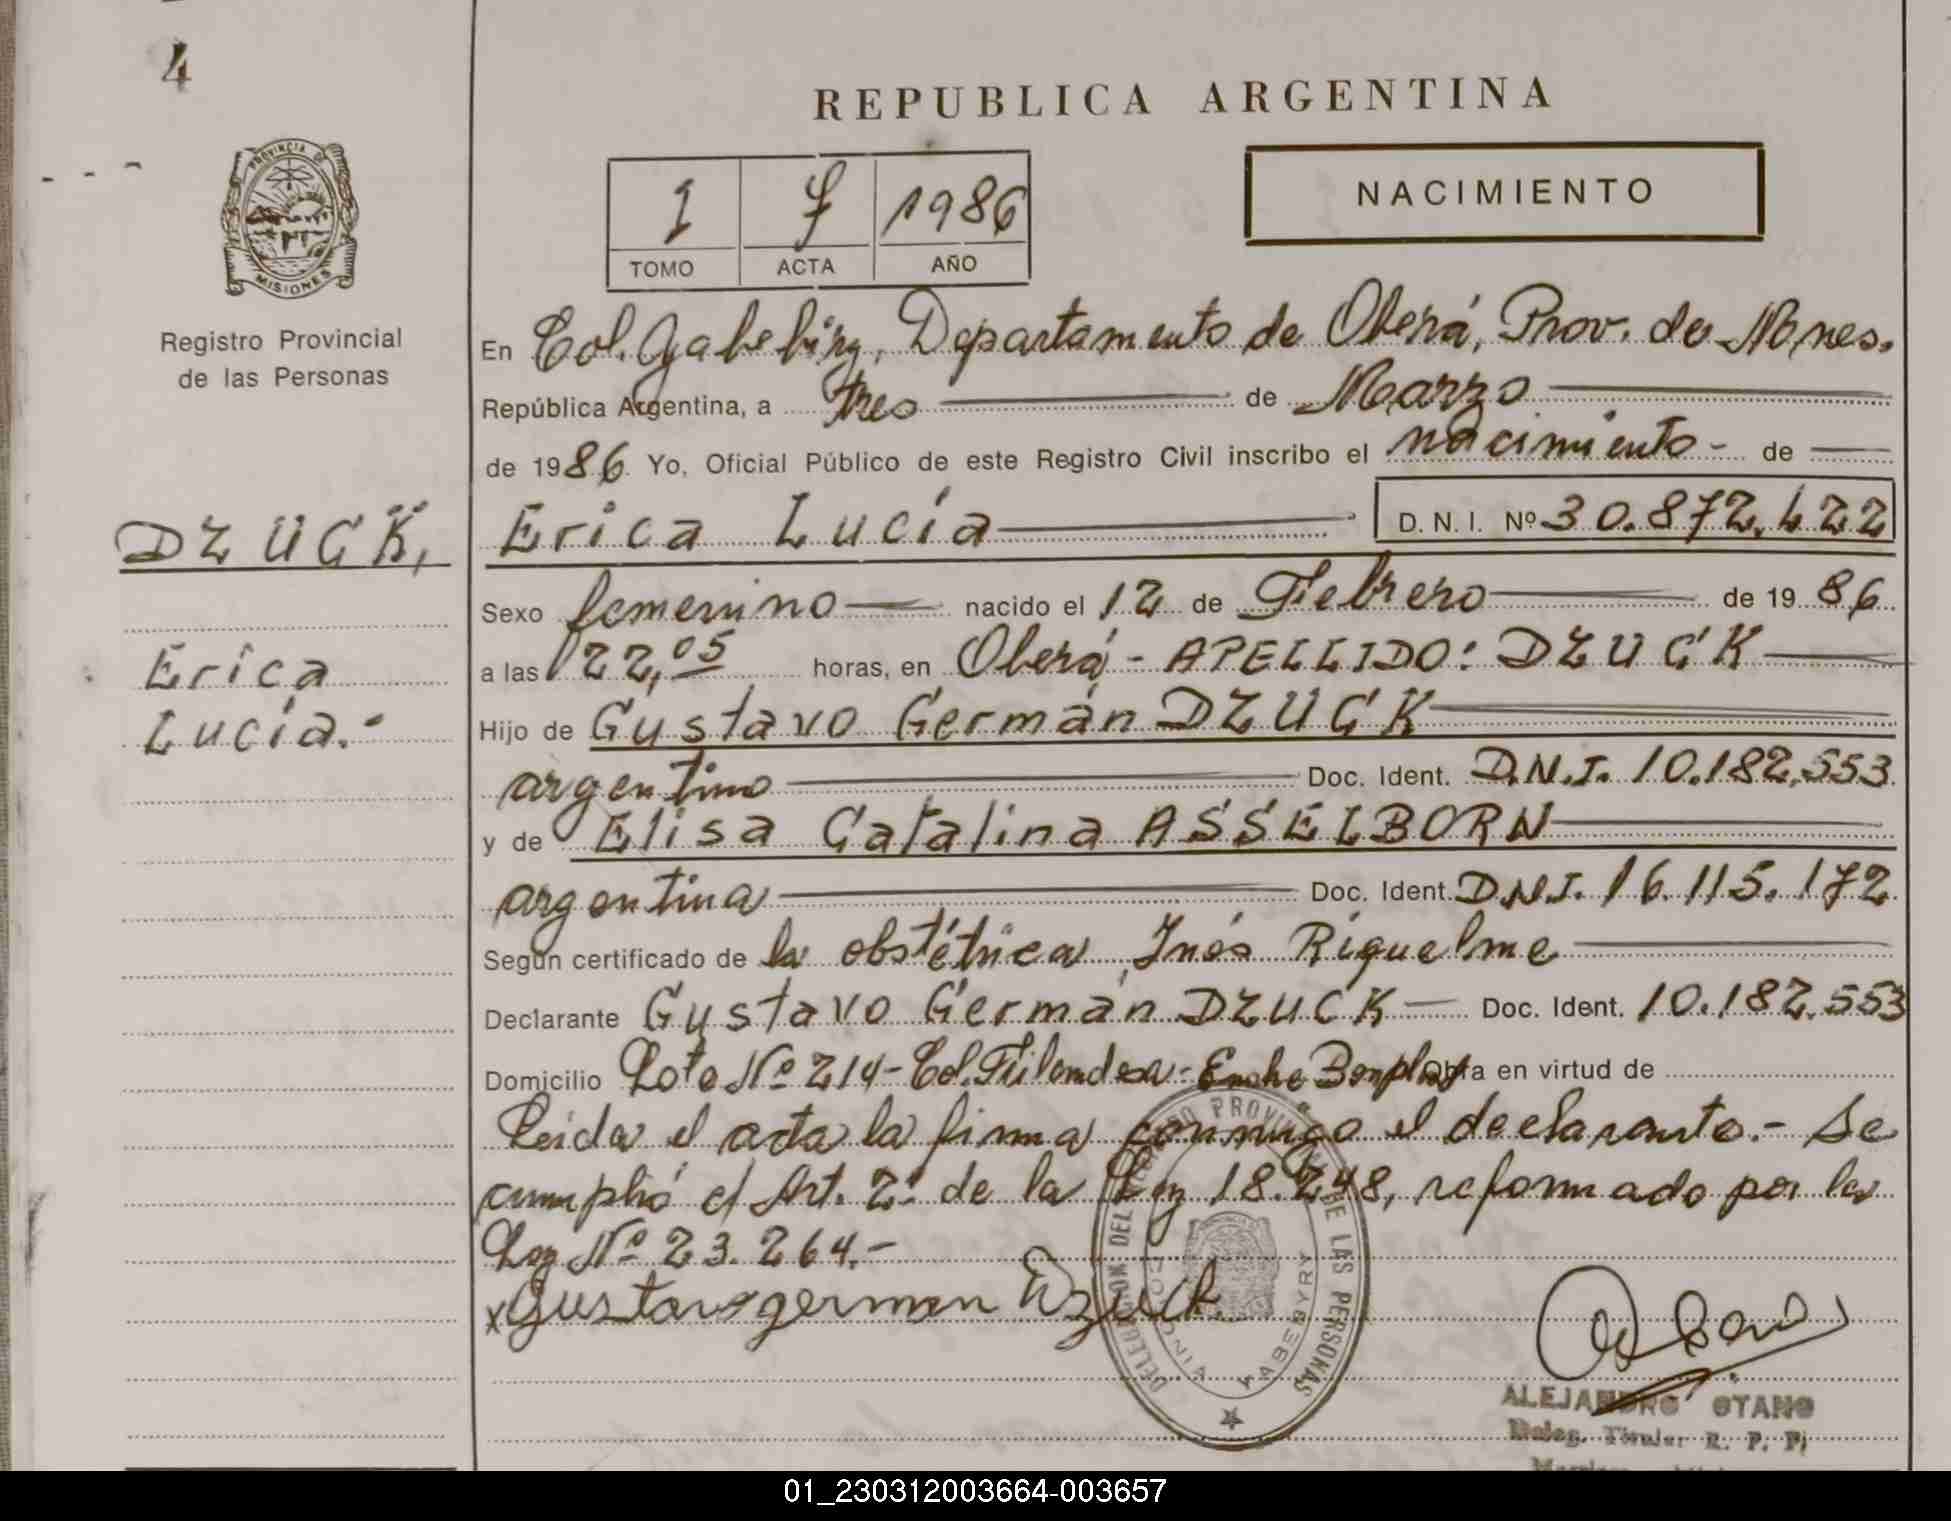 4
REPUBLICA ARGENTINA
NACIMIENTO
PROVINCIA DE
MISIONES
Registro Provincial
de las Personas
1 7 1986
TOMO ACTA AÑO
En Col. Yabebiry, Departamento de Oberá, Prov. de Mnes.
República Argentina, a tres de Marzo
de 1986. Yo, Oficial Público de este Registro Civil inscribo el nacimiento - de
DZUCK, Erica Lucía D. N. I. Nº 30.872.422
Sexo femenino nacido el 12 de Febrero de 1986
Erica
a las 22,05 horas, en Oberá - APELLIDO: DZUCK
Lucía.-
Hijo de Gustavo Germán DZUCK
argentino Doc. Ident. D.N.I. 10.182.553
y de Elisa Catalina ASSELBORN
argentina Doc. Ident. D.N.I. 16.115.172
Según certificado de la obstétrica Inés Riquelme
Declarante Gustavo Germán DZUCK Doc. Ident. 10.182.553
Domicilio Lote Nº 214 - Col. Filandesa - Bonpland Obra en virtud de
Leida el acta la firma conmigo el declarante.- Se
cumplió el Art. 2º de la Ley 18.248, reformado por la
Ley Nº 23.264.-
x Gustavo german Dzuck
DELEGACION DEL REGISTRO PROVINCIAL DE LAS PERSONAS
COLONIA YABEBYRY
ALEJANDRO OTANO
Deleg. Titular R. P. P.
01_230312003664-003657